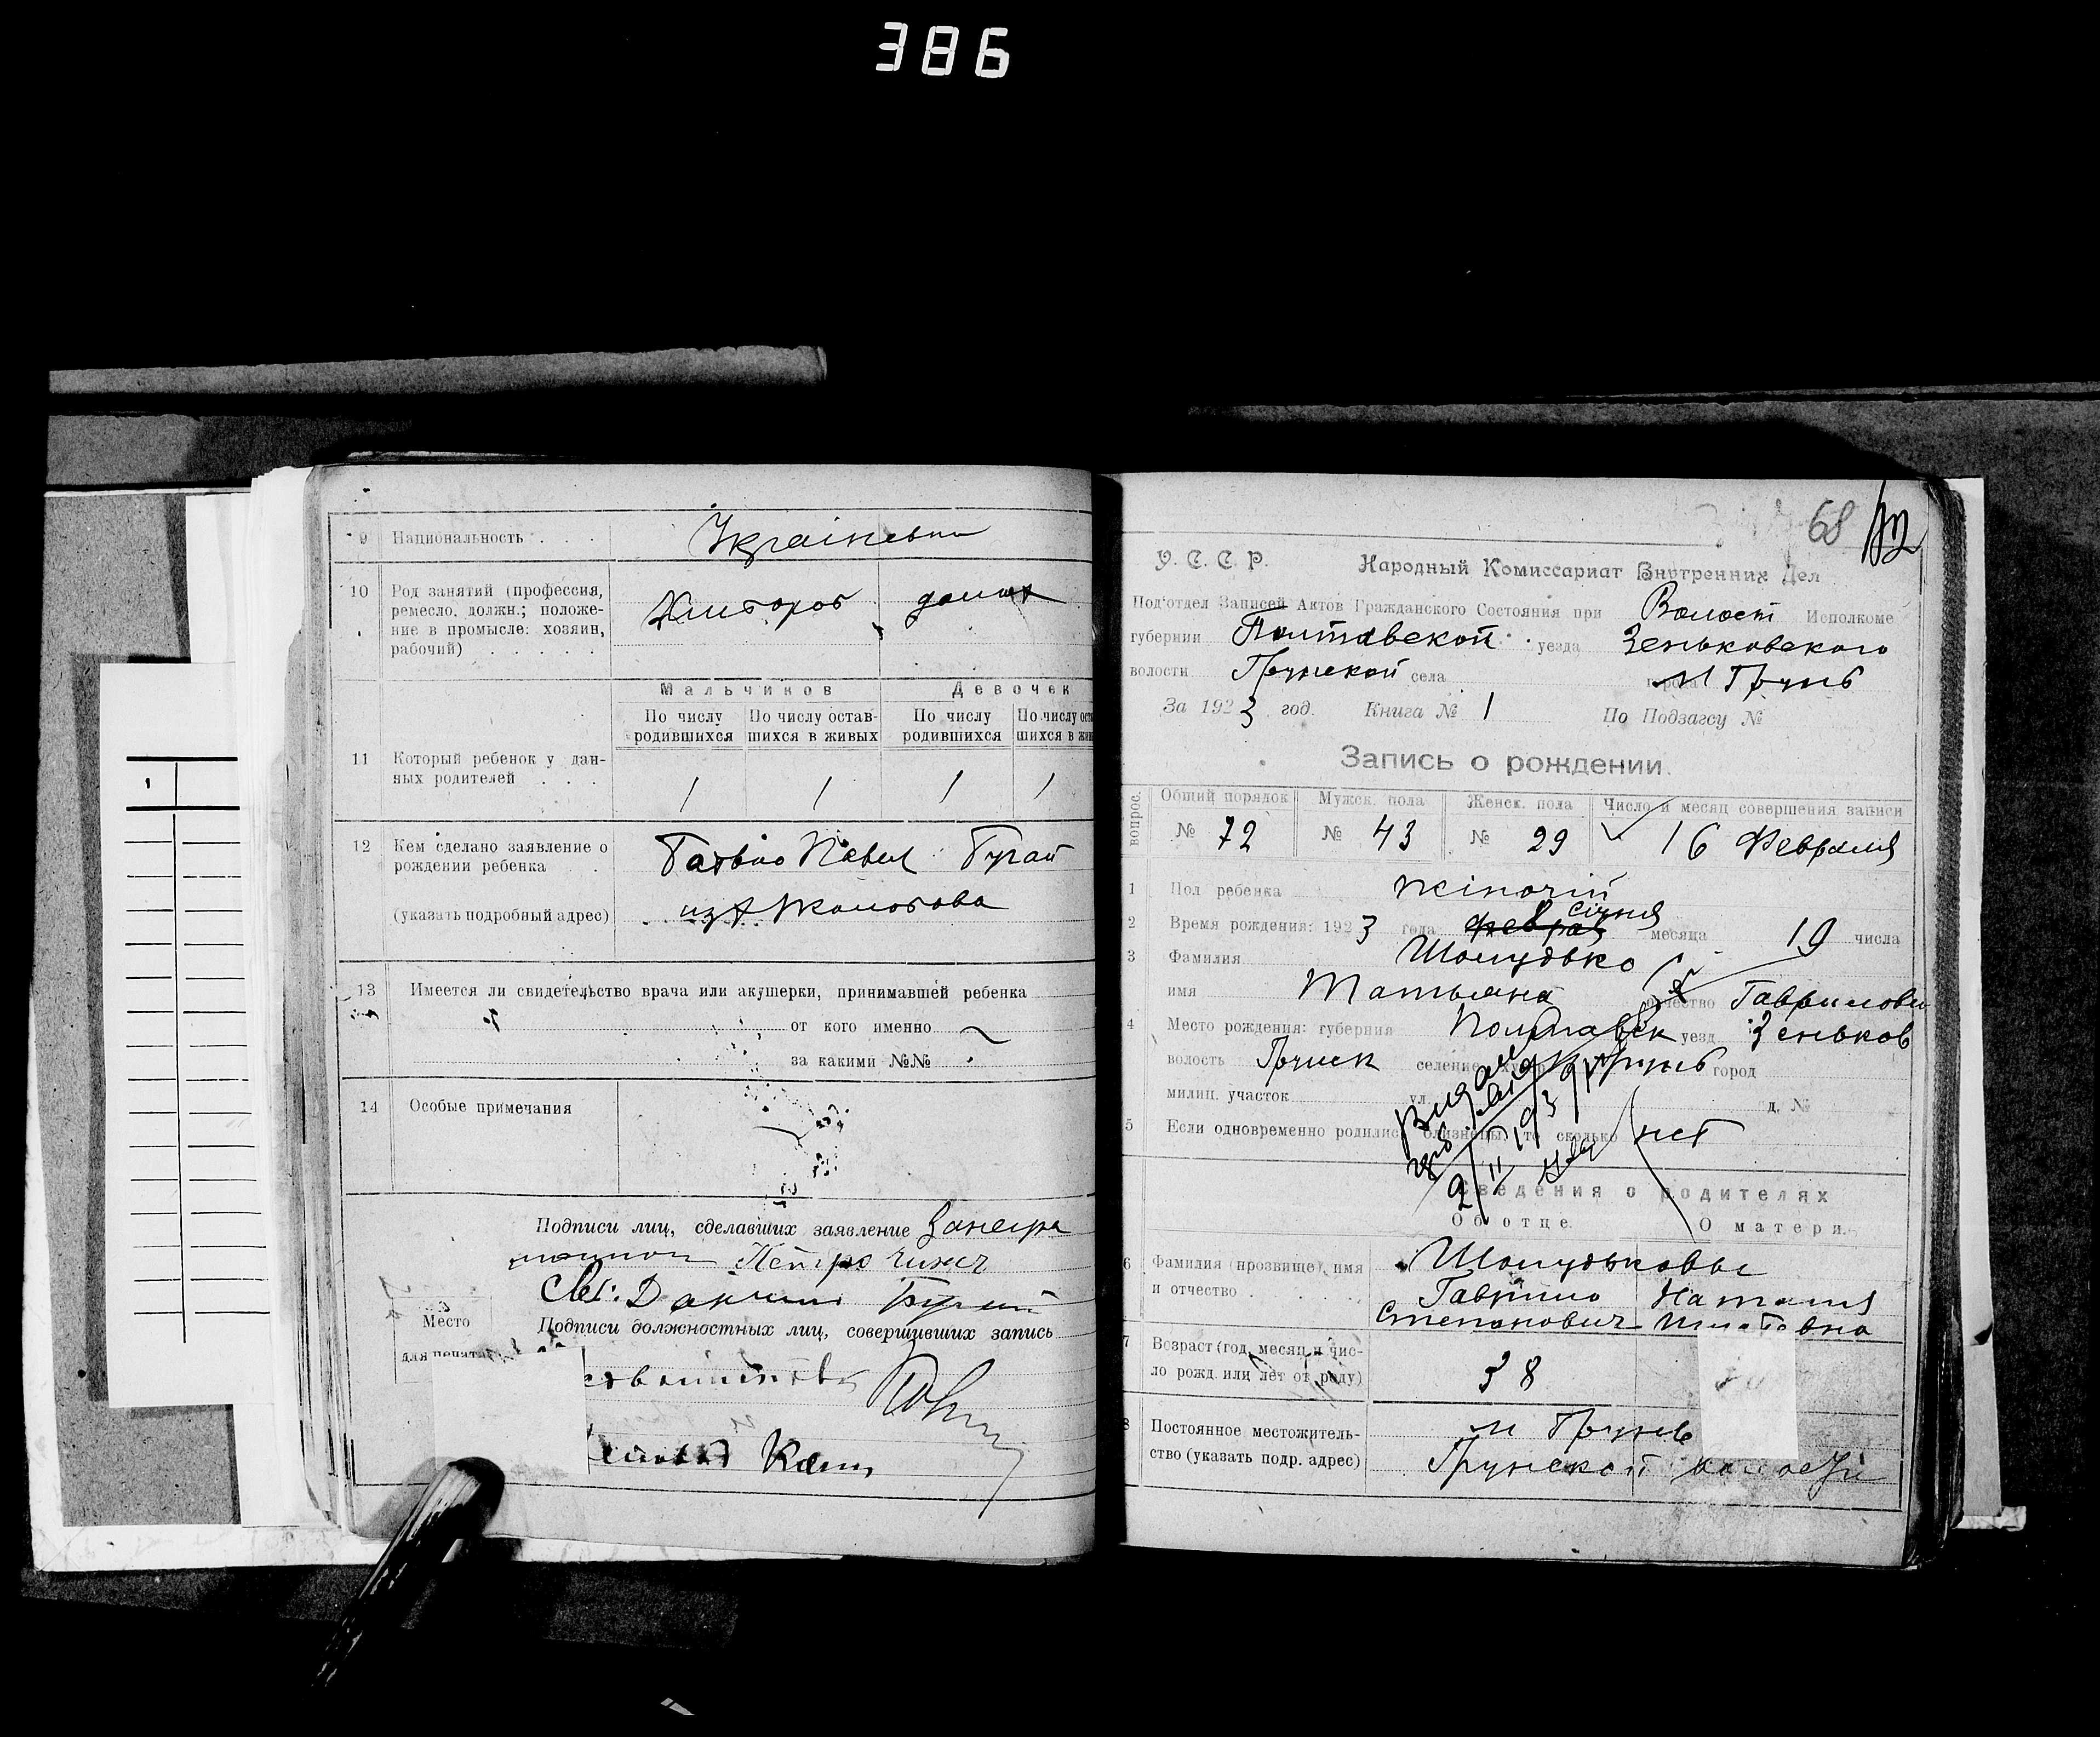 386
9 Национальность . . . Українськи
10 Род занятий (профессия,
ремесло, должн.; положе-
ние в промысле: хозяин,
рабочий) . . . . .
Хлібороб
Мальчиков Девочек
По числу родившихся По числу остав-шихся в живых По числу родившихся По числу
11 Который ребенок у дан-
ных родителей . . .
1 1 1 1
12 Кем сделано заявление о
рождении ребенка
Батько Павел Бугай
(указать подробный адрес)
из
13 Имеется ли свидетельство врача или акушерки, принимавшей ребенка
от кого именно
за какими №№
14 Особые примечания
Подписи лиц, сделавших заявление
Петро
Св: Данило Бугай
Подписи должностных лиц, совершивших запись
Место
для печати
68
У. С. С. Р. Народный Комиссариат Внутренних Дел
Под'отдел Записей Актов Гражданского Состояния при Волост Исполкоме
губернии Полтавской уезда Зеньковского
волости Грунской села м Грунь
За 1923 год. Книга № 1 По Подзагсу №
Запись о рождении.
вопрос. Общий порядок Мужск. пола Женск. пола Число и месяц совершения записи
№ 72 № 43 № 29 16 Февраля
1 Пол ребенка жіночій
січня
2 Время рождения: 1923 года Феврал месяца 19 числа
3 Фамилия Шолудько
имя Татьяна отчество Гавриловн
4 Место рождения: губерния Полтавск уезд Зеньков
волость Грунск селение Грунь город
милиц. участок ул. д. №
5 Если одновременно родились близнецы, то сколько нет
Сведения о родителях
Об отце. О матери.
6 Фамилия (прозвище), имя
и отчество . . .
Шолудьковы
Гаврило Наталия
Степанович
7 Возраст (год, месяц и чис-
ло рожд. или лет от роду)
38
8 Постоянное местожитель-
ство (указать подр. адрес)
м Грунь
Грунской волости